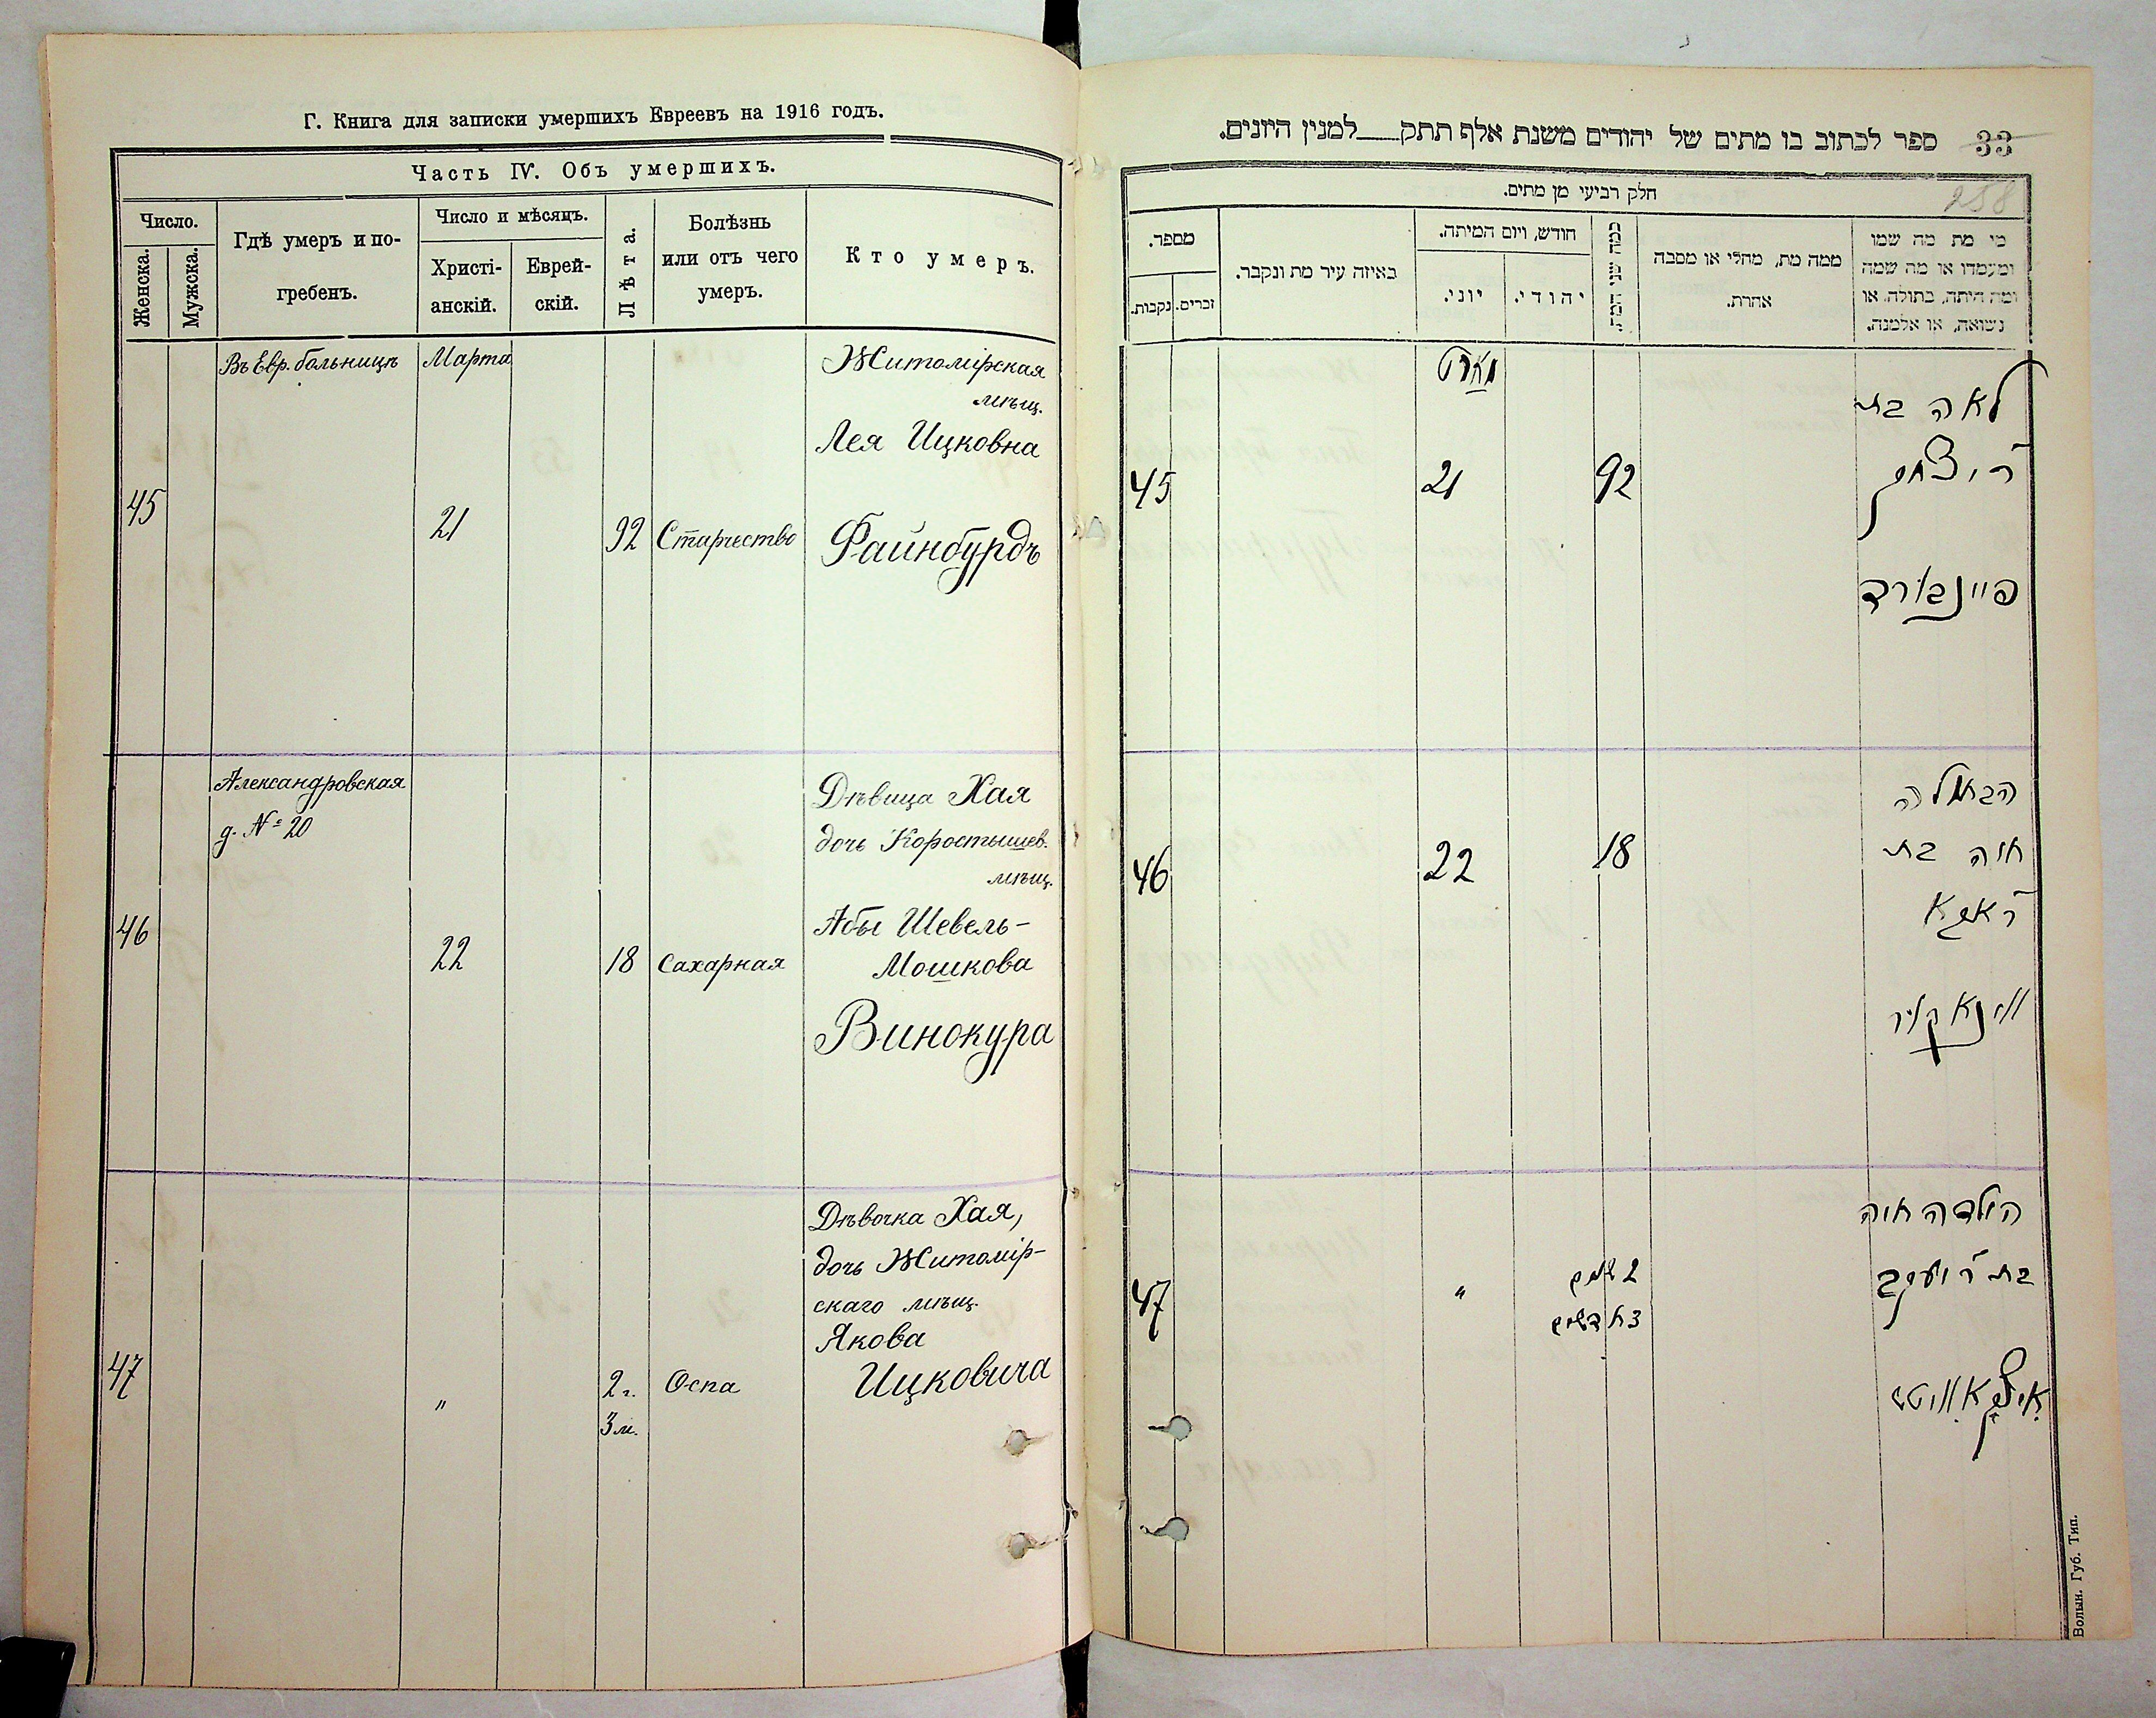 Г. Книга для записки умершихъ Евреевъ на 1916 годъ.
Часть IV. Объ умершихъ.
Число.
Женска.
Мужска.
Гдѣ умеръ и по-
гребенъ.
Число и мѣсяцъ.
Христі-
анскій.
Еврей-
скій.
Лѣта.
Болѣзнь
или отъ чего
умеръ.
Кто умеръ.
Въ Евр. больницѣ
Марта
Житомірская
мѣщ.
Лея Ицковна
45
21
92
Старчество
Файнбурдъ
Александровская
д. № 20
Дѣвица Хая
дочь Коростышев.
мѣщ.
Абы Шевель-
Мошкова
46
22
18
Сахарная
Винокура
Дѣвочка Хая,
дочь Житомір-
скаго мѣщ.
Якова
Ицковича
47
"
2 г.
3 м.
Оспа
ספר לכתוב בו מתים של יהודים משנת אלף תתק__למנין היונים.
33
258
חלק רביעי מן מתים.
מספר.
נקבות.
זכרים.
באיזה עיר מת ונקבר.
חודש, ויום המיתה.
יוני.
יהודי.
כמה שני המת.
ממה מת, מחלי או מסבה
אחרת.
מי מת מה שמו
ומעמדו או מה שמה
ומה היתה, בתולה, או
נשואה, או אלמנה.
מארט
לאה בת
ר' יצחק
45
21
92
פיינבורד
הבתולה
חיה בת
ר' אבא
46
22
18
ווינאקור
הילדה חיה
בת ר' יעקב
47
"
2 שנים
3 חדשים
איצקאוויטש
Волын. Губ. Тип.